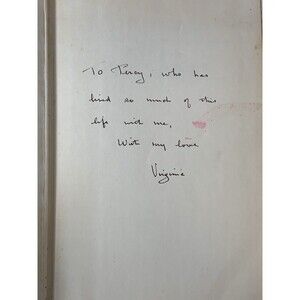 To Percy, who has
lived so much of this
life with me,
With my love
Virginia